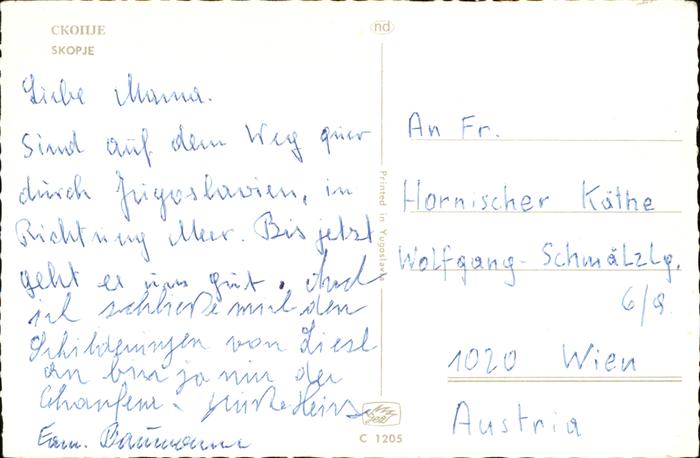 СКОПЈЕ
SKOPJE
nd
Liebe Mama.
Sind auf dem Weg quer
durch Jugoslavien, in
Richtung Meer. Bis jetzt
geht es uns gut. Auch
ich schließe mich den
Schilderungen von Liesl
an bin ja nur der
Chauffeur. Heinz
Fam. Baumann
Printed in Yugoslavia
C 1205
An Fr.
Hornischer Käthe
Wolfgang-Schmälzlg.
6/9
1020 Wien
Austria